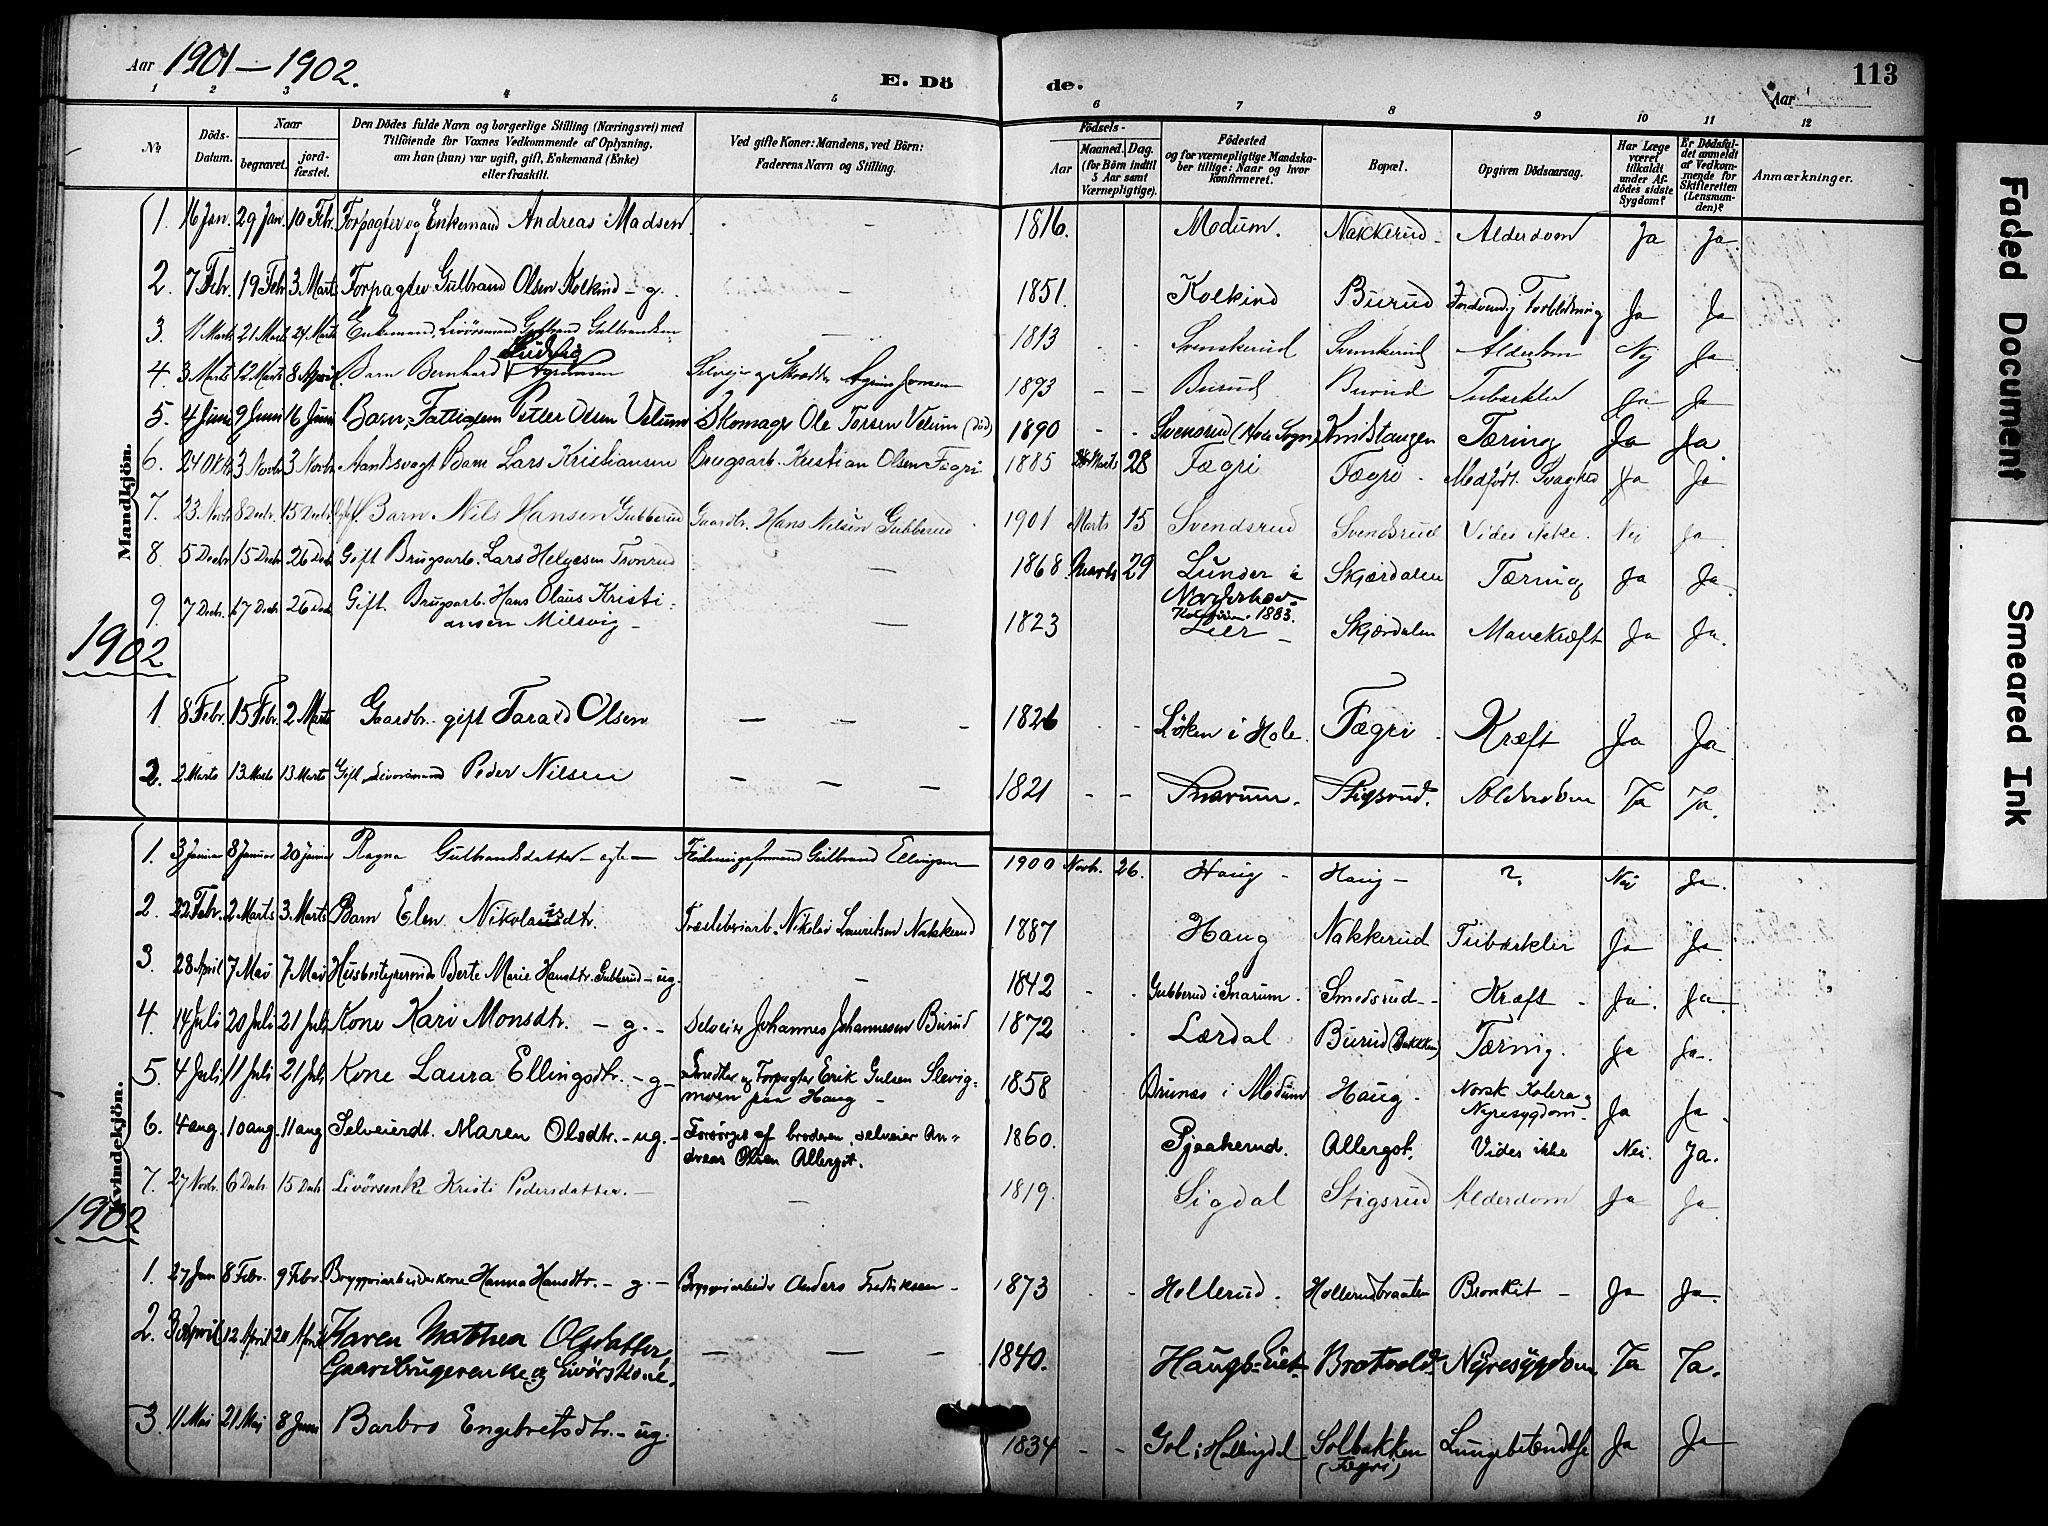 Aar 1901–1902.
E. Dö de.
Aar
113
1 2 3 4 5 6 7 8 9 10 11 12
No.
Döds-Datum.
Naar
begravet.
jord-fæstet.
Den Dödes fulde Navn og borgerlige Stilling (Næringsvei) med
Tilföiende for Voxnes Vedkommende af Oplysning,
om han (hun) var ugift, gift, Enkemand (Enke)
eller fraskilt.
Ved gifte Koner: Mandens, ved Börn:
Faderens Navn og Stilling.
Födsels-
Aar
Maaned. Dag.
(for Börn indtil
5 Aar samt
Værnepligtige).
Födested
og for værnepligtige Mandska-
ber tillige: Naar og hvor
konfirmeret.
Bopæl.
Opgiven Dödsaarsag.
Har Læge
været
tilkaldt
under Af-
dödes sidste
Sygdom?
Er Dödsfal-
det anmeldt
af Vedkom-
mende for
Skifteretten
(Lensman-
den)?
Anmærkninger.
Mandkjön.
1. 16 Jan. 29 Jan. 10 Febr. Forpagter og Enkemand Andreas Madsen. – 1816. Modum. Nakkerud. Alderdom Ja Ja.
2. 7 Febr. 19 Febr. 3 Marts Forpagter Gulbrand Olsen Kolkind – g. – 1851. Kolkind Burud Indvendig Forblödning Ja Ja
3. 11 Marts 21 Marts 24 Marts Enkemand, Livörsmand Gulbrand Gulbrandsen – 1813 Svenskerud Svenskerud Alderdom Nej Ja
Ludvig
4. 3 Marts 12 Marts 8 April Barn Bernhard Selveier og Skrædder 1893 – – Burud Burud Tuberkler Ja Ja
5. 4 Juni 9 Juni 16 Juni Barn, Fattiglem Petter Olsen Velum Skomager Ole Torsen Velum (död) 1890 Svensrud (Hole Sogn) Knidstangen Tæring Ja Ja.
6. 24 Oktr. 3 Novbr. 3 Novbr. Aandsvagt Barn Lars Kristiansen Brugsarb. Kristian Olsen Fægri 1885 Marts 28 Fægri Fægri. Medfödt Svaghed Ja Ja
7. 23 Novbr. 8 Decbr. 15 Decbr. Barn Nils Hansen Gubberud Gaardbr. Hans Nilsen Gubberud 1901 Marts 15 Svendsrud Svendsrud Vides ikke. Nei Ja.
8. 5 Decbr. 15 Decbr. 26 Decbr. Gift Brugsarb. Lars Helgesen Tronrud – 1868. Marts 29 Lunder i Skjærdalen Tæring Ja Ja.
Norderhov
Konfirm. 1883.
9. 7 Decbr. 17 Decbr. 26 Decbr. Gift Brugsarb. Hans Olaus Kristi-
ansen Milsvig – – 1823 Lier – Skjærdalen Mavekræft Ja Ja.
1902
1 8 Febr. 15 Febr. 2 Marts Gaardbr. gift Tarald Olsen – – – 1826 Löken i Hole. Fægri. Kræft Ja Ja
2. 2 Marts 13 Marts 13 Marts Gift Livörsmand Peder Nilsen – – – 1821 – – Snarum. Stigsrud. Alderdom Ja Ja.
Kvindekjön.
1. 3 Januar 8 Januar 20 Januar Ragna Gulbrandsdatter – egte – Flödningsformand Gulbrand Ellingsen 1900 Novbr. 26. Haug – Haug – ? Nei Ja.
2. 22 Febr. 2 Marts 3 Marts Barn Elen Nikolaisdtr. Træsliberiarb. Nikolai Lauritsen Nakkerud 1887 Haug Nakkerud Tuberkler Ja Ja.
3. 28 April 7 Mai 7 Mai Husbestyrerinde Berte Marie Hansdtr. Gubberud – ug. – 1842 Gubberud i Snarum. Smedsrud – Kræft – Ja. Ja.
4. 14 Juli 20 Juli 21 Juli Kone Kari Monsdtr. – g. – Selveier Johannes Johannesen Burud 1872 Lærdal Burud (Bakken) Tæring. Ja Ja.
5. 4 Juli 11 Juli 21 Juli Kone Laura Ellingsdtr. – g – Smedker og Forpagter Erik Gulsen Slevig-
moen paa Haug – 1858 Brunæs i Modum Haug – Norsk Kolera og
Nyresygdom – Ja Ja.
6. 4 aug. 10 aug. 11 aug Selveierdt. Maren Olsdtr. – ug. – Forsörget af broderen, selveier An-
dreas Olsen Allergot. 1860. Pjaakerud. Allergot. Vides ikke Nei. Ja.
7. 27 Novbr. 6 Decbr. 15 Decbr. Livörsenke Kristi Pedersdatter. – – 1819. Sigdal Stigsrud Alderdom Ja Ja.
1902
1. 27 Jan 8 Febr. 9 Febr. Bryggeriarbeiderkone Hanna Hansdtr. – g. – Bryggeriarbeider Anders Fredriksen – 1873 – Hollerud. Hollerudbraaten Bronkit – Ja Ja.
2. 3 April 12 April 20 April Karen Mathea Olsdatter,
Gaardbrugerenke og Livörskone. – – – 1840. Haugs-Eiet – Brotvold. Nyresygdom Ja Ja.
3. 11 Mai 21 Mai 8 Juni Barbro Engebretsdtr. – ug. 1834 – – Gol i Hallingdal Solbakken Lungebetændelse Ja Ja
(Fægri)
Faded Document
Smeared Ink